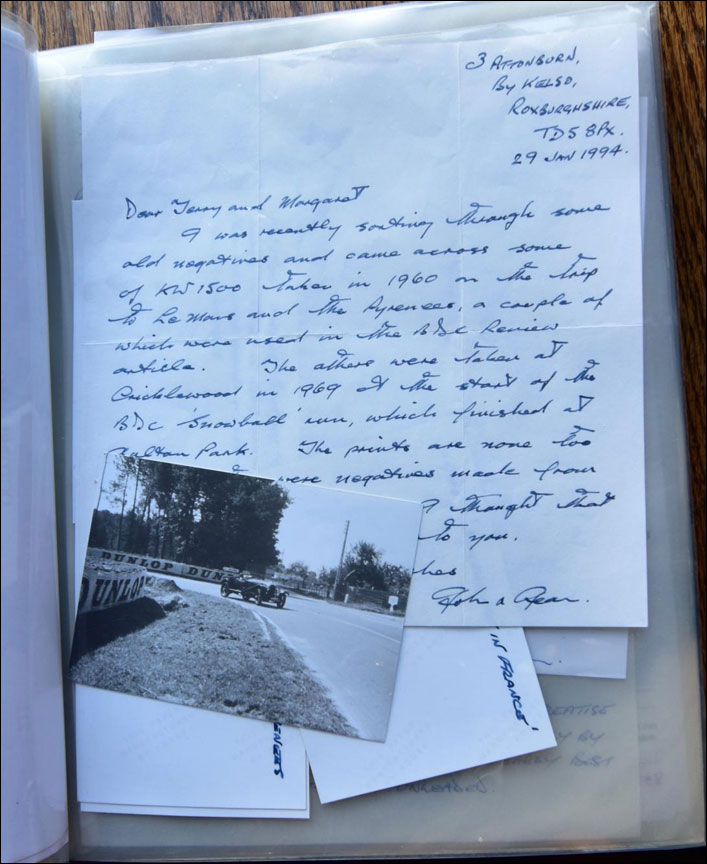 3 ATTONBURN,
BY KELSO,
ROXBURGHSHIRE,
TD5 8PX.
29 JAN 1994.
Dear Terry and Margaret
I was recently sorting through some
old negatives and came across some
of KW1500 taken in 1960 on the trip
to Le Mans and the Pyrenees, a couple of
which were used in the BDC Review
article. The others were taken at
Cricklewood in 1969 at the start of the
BDC 'Snowball' run, which finished at
Oulton Park. The prints are none too
were negatives made from
I thought that
to you.
DUNLOP DUN
DUNLOP
IN FRANCE'
BY
BEST